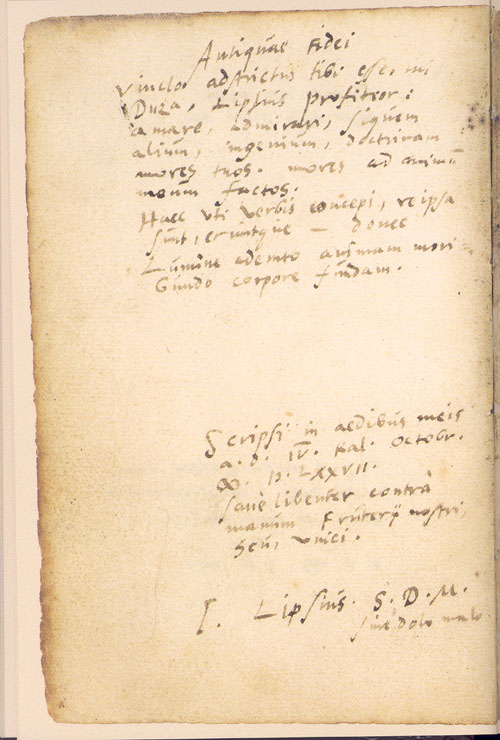 Antiquae Fidei
vinclo adstrictum tibi esse, mi
Duza, Lipsius profiteor:
amare, admirari, siquem
alium, ingenium, doctrinam
mores tuos. mores ad animū
meum factos.
Haec uti verbis concepi, reipsa
sunt, eruntque — donec
Lumine adempto animam mori-
bundo corpore fundam.
Scripsi in aedibus meis
a. d. IV. Kal. Octobr.
LXXVII.
sane libenter contra
manum Fruterij nostri,
heu, unici.
I. Lipsius. S. D. M.
sine dolo malo